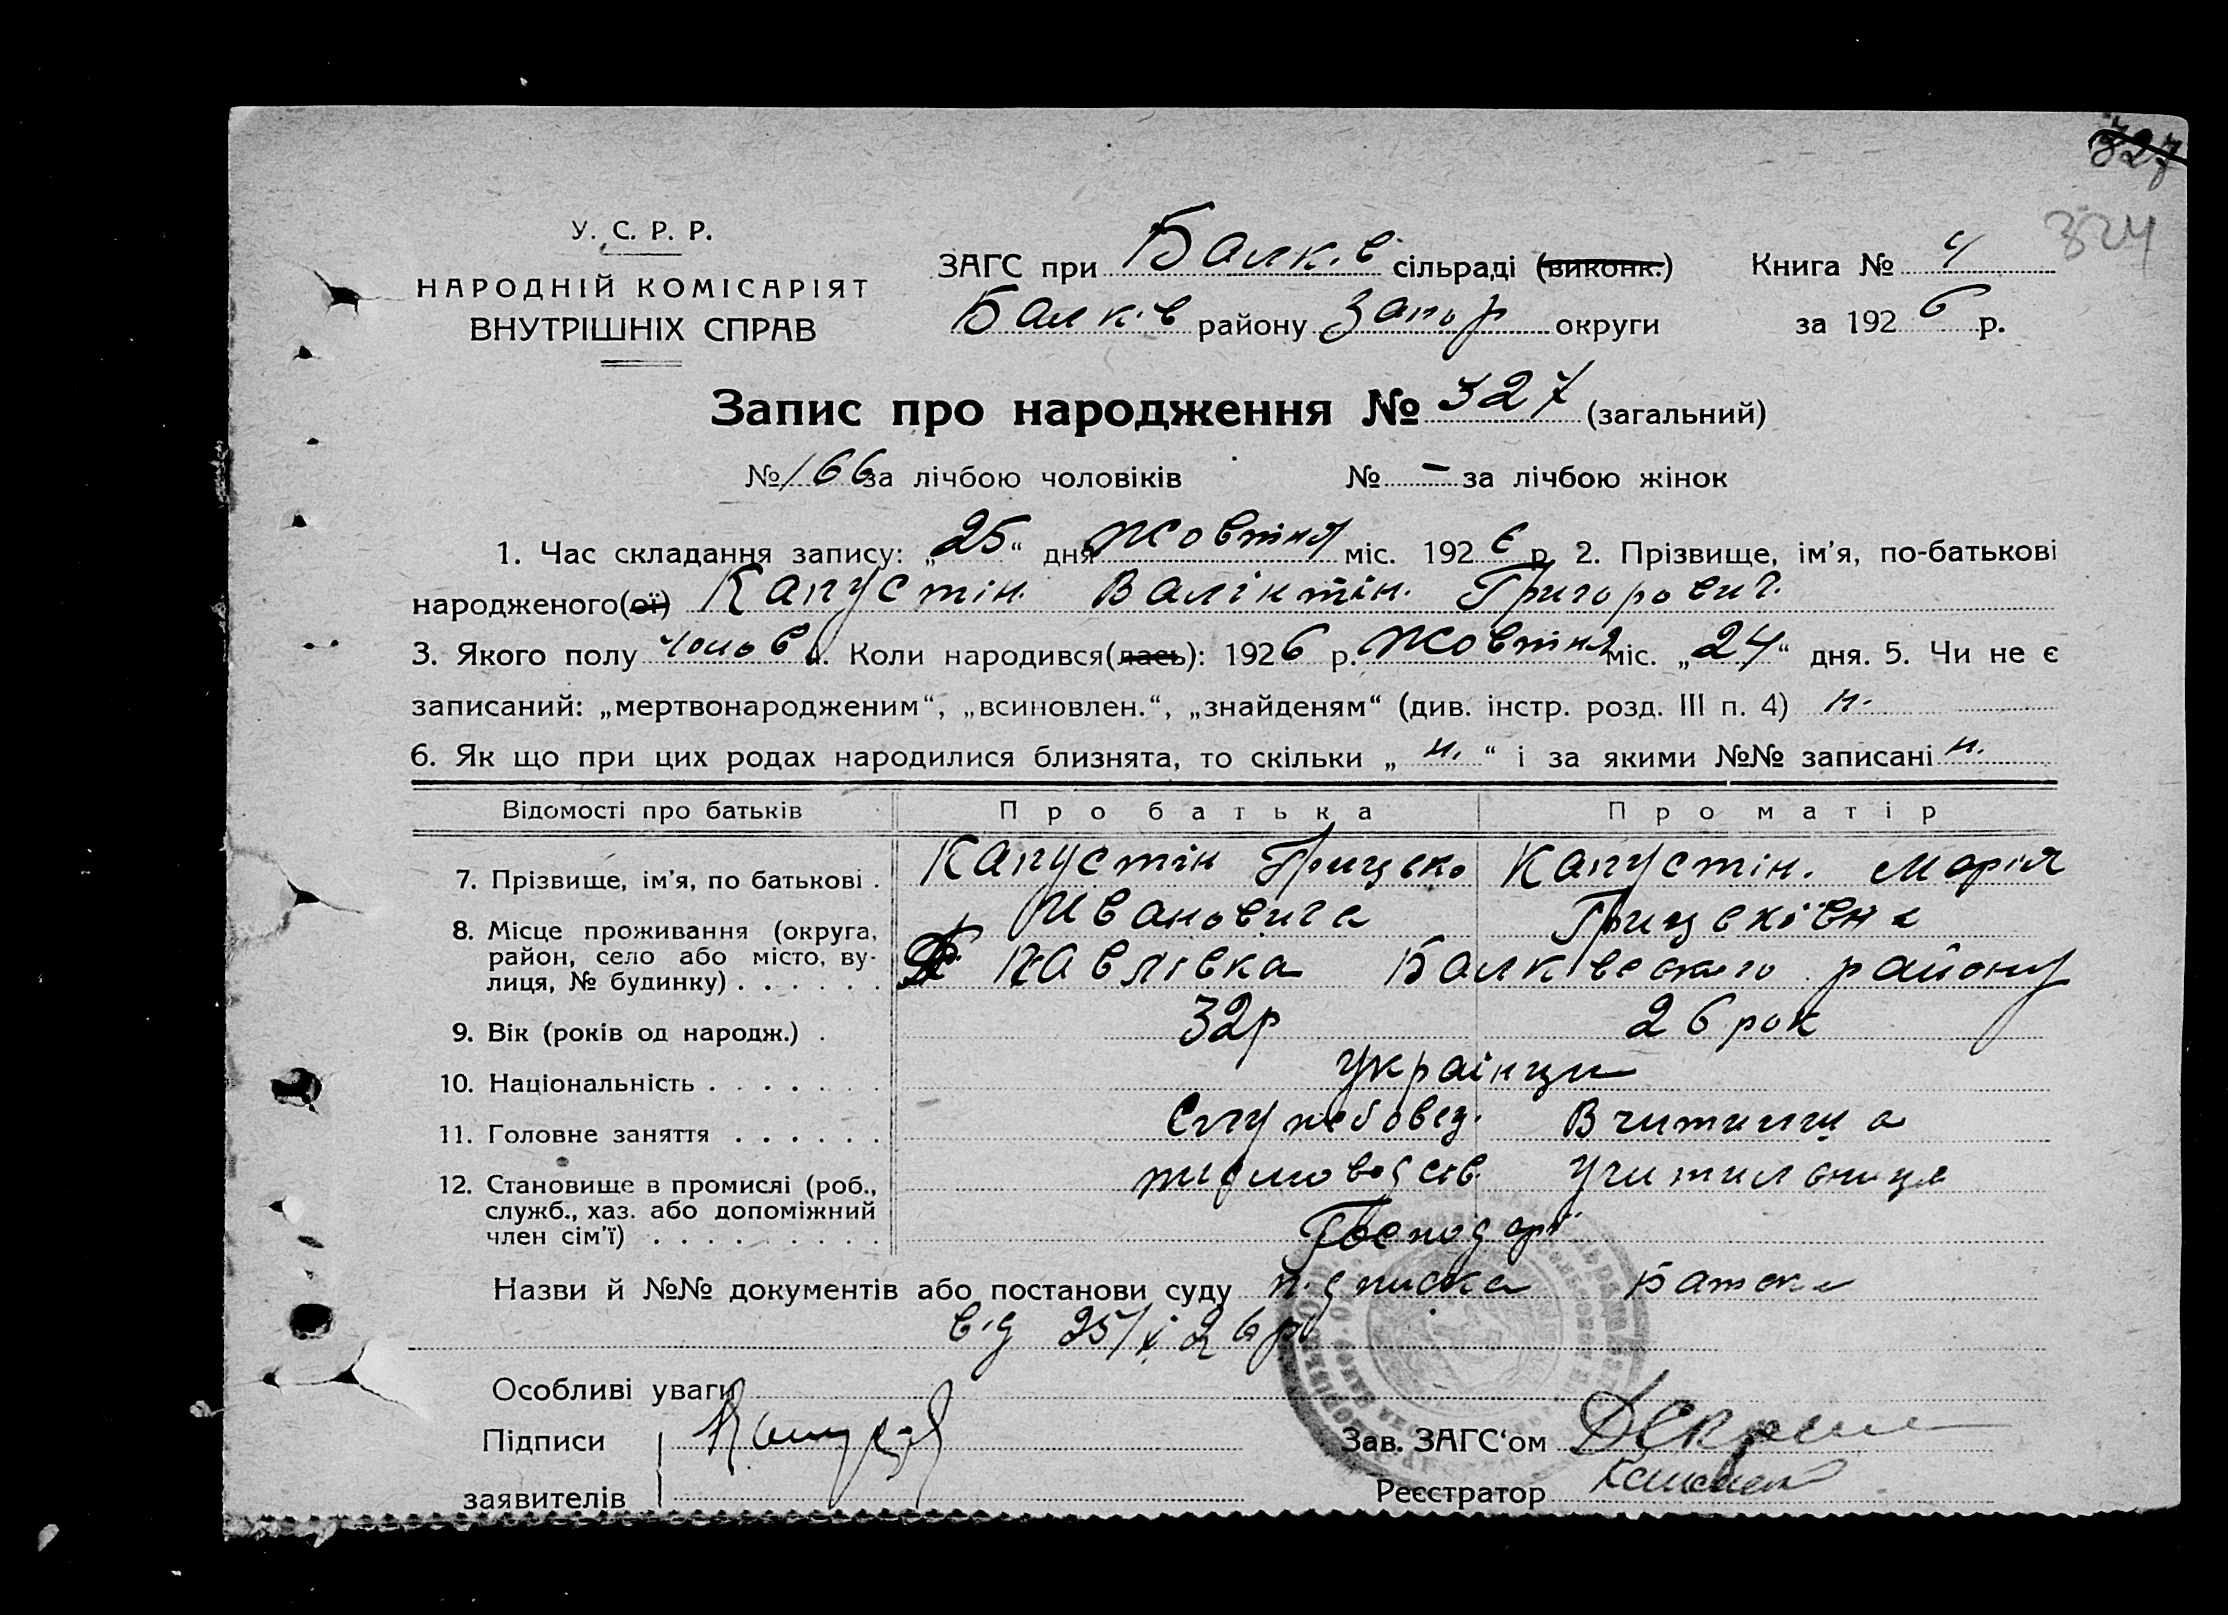 327
324
У. С. Р. Р.
НАРОДНІЙ КОМІСАРІЯТ
ВНУТРІШНІХ СПРАВ
ЗАГС при Балк.в сільраді (виконк.) Книга № 4
Балк.в району Запор округи за 1926 р.
Запис про народження № 327 (загальний)
№ 166 за лічбою чоловіків № – за лічбою жінок
1. Час складання запису: „25“ дня Жовтня міс. 1926 р. 2. Прізвище, ім’я, по-батькові
народженого(ої) Капустін. Валінтін. Григорович.
3. Якого полу Чолов Коли народився(лась): 1926 р. Жовтня міс. „24“ дня. 5. Чи не є
записаний: „мертвонародженим“, „всиновлен.“, „знайденям“ (див. інстр. розд. III п. 4) н.
6. Як що при цих родах народилися близнята, то скільки „ н. “ і за якими №№ записані н.
Відомості про батьків Про батька Про матір
7. Прізвище, ім’я, по батькові . Капустін Грицько Капустін. Марія
Ивановича Грицьківна
8. Місце проживання (округа,
район, село або місто, ву-
лиця, № будинку) . . . . . . Павлівка Балківського району
9. Вік (років од народж.) . 32р 26 рок
10. Національність . . . . . . українци
11. Головне заняття . . . . . . Службовец. Вчитилица
12. Становище в промислі (роб.,
служб., хаз. або допоміжний
член сім’ї) . . . . . . . . . учитильница
Господарі
Назви й №№ документів або постанови суду п.дписка Батька
в.д 25/X 26р
Особливі уваги
Підписи
заявителів
Зав. ЗАГС‘ом
Реєстратор